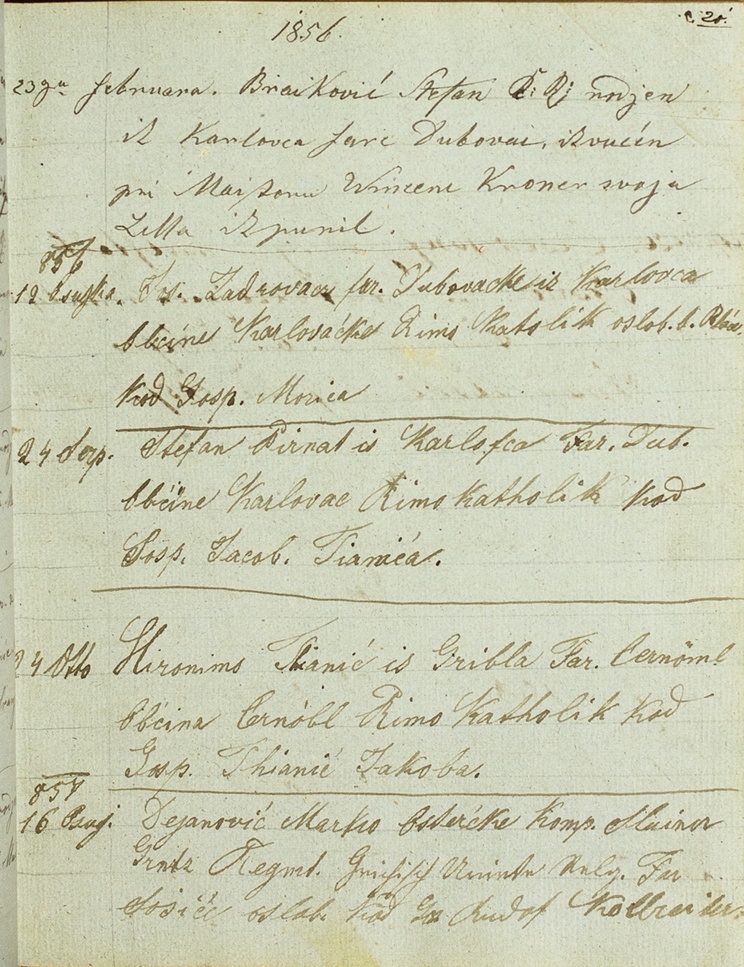 20
1856.
23ga februara. Braiković Stefan R: R: rodjen
iz Karlovca fare Dubovac, izvučen
pri Maistoru Wincent Kroner svoja
Letta izpunil.
856
12 Fr. Zadrovacz far. Dubovačke iz Karlovca
Občine Karlovačke Rimo Katolik oslob. b.
Kod Gosp. Morica
24 Serp. Stefan Pirnat is Karlofca Far. Dub.
Občine Karlovac Rimokatholik kod
Gosp. Jacob. Tianića.
24 Otto Hironims Thianić is Gribla Far. Černöml
Občina Černöbl Rimo Katholik kod
Gosp. Thianić Jakoba.
857
16 Dejanović Marko Osterćke Komp. Sluiner
Grntz Regmt. Far
oslob. kod Gn Rudof